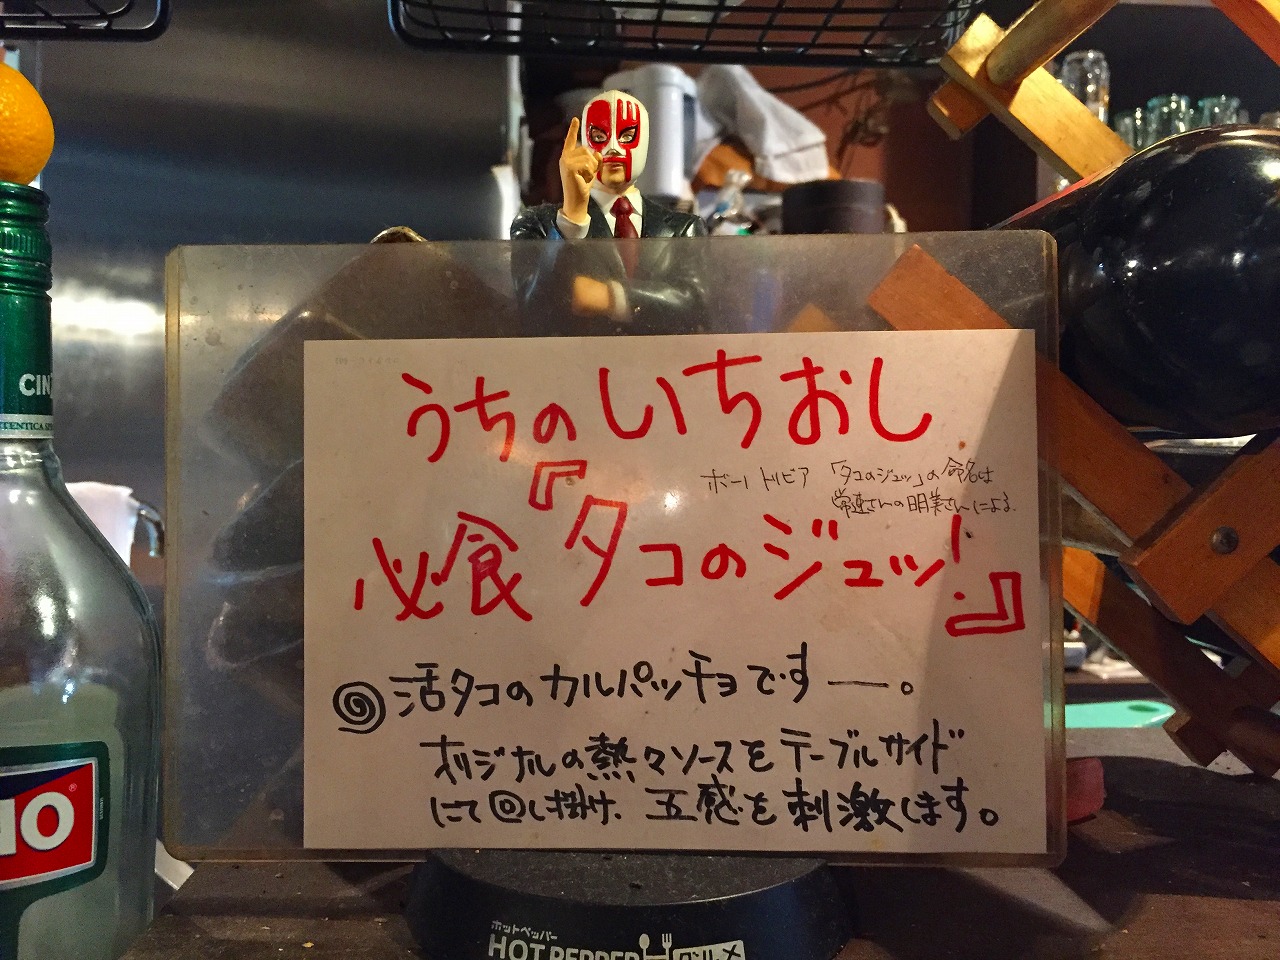 うちのいちおし
ボールトリビア 「タコのジュッ」の命名は
常連さんの明美さんによる。
必食『タコのジュッ!』
活タコのカルパッチョです—。
オリジナルの熱々ソースをテーブルサイド
にて回し掛け、五感を刺激します。
CIN
ホットペッパー
HOT PEPPER グルメ